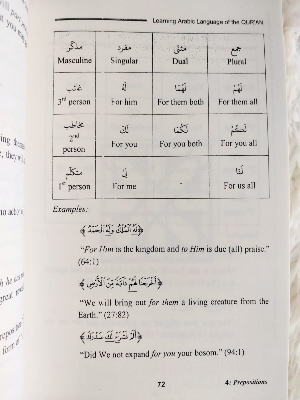 Learning Arabic Language of the QUR'AN
مذكّر مفرد مثنّى جمع
Masculine Singular Dual Plural
غائب لَهُ لَهُمَا لَهُمْ
3rd person For him For them both For them all
مخاطب لَكَ لَكُمَا لَكُمْ
2nd person For you For you both For you all
متكلّم لِي لَنَا
1st person For me For us all
Examples:
﴿لَهُ الْمُلْكُ وَلَهُ الْحَمْدُ﴾
"For Him is the kingdom and to Him is due (all) praise."
(64:1)
﴿أَخْرَجْنَا لَهُمْ دَابَّةً مِنَ الْأَرْضِ﴾
"We will bring out for them a living creature from the
Earth." (27:82)
﴿أَلَمْ نَشْرَحْ لَكَ صَدْرَكَ﴾
"Did We not expand for you your bosom." (94:1)
72
4: Prepositions